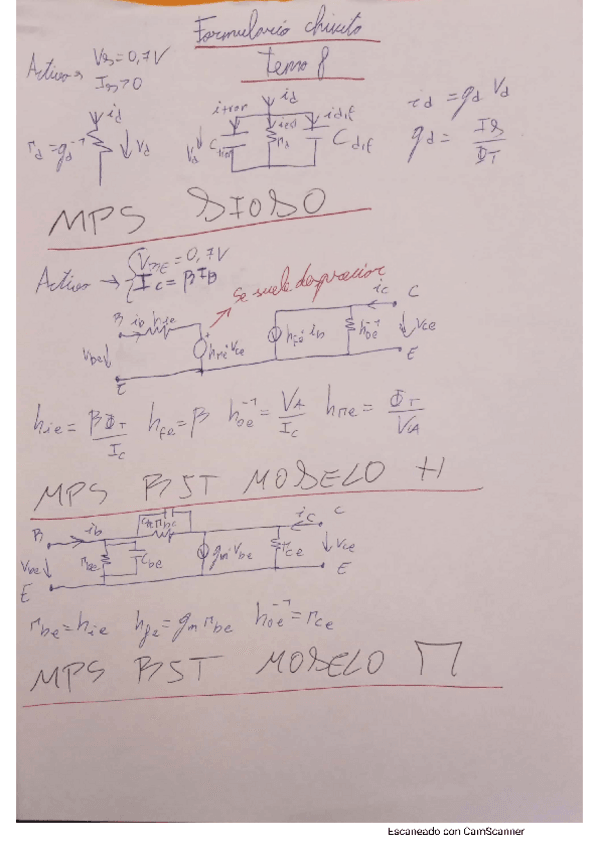 Formulario chiuto
Tema 8
Activo → V_D = 0,7V
I_D > 0
i_d
r_d = g_d⁻¹
V_d
i_d
i_dif
V_d
r_d
C_dif
i_d = g_d V_d
g_d = I_D / Φ_T
MPS DIODO
Activo → V_BE = 0,7V
I_C = β I_B
Se suele despreciar
B i_b h_ie
i_c C
V_be
h_re V_ce
h_fe i_b
h_oe⁻¹
V_ce
E
E
h_ie = β Φ_T / I_C h_fe = β h_oe⁻¹ = V_A / I_C h_re = Φ_T / V_A
MPS BJT MODELO H
r_bc
B i_b
i_c C
V_be
r_be
C_be
g_m V_be
r_ce
V_ce
E
E
r_be = h_ie h_fe = g_m r_be h_oe⁻¹ = r_ce
MPS BJT MODELO Π
Escaneado con CamScanner